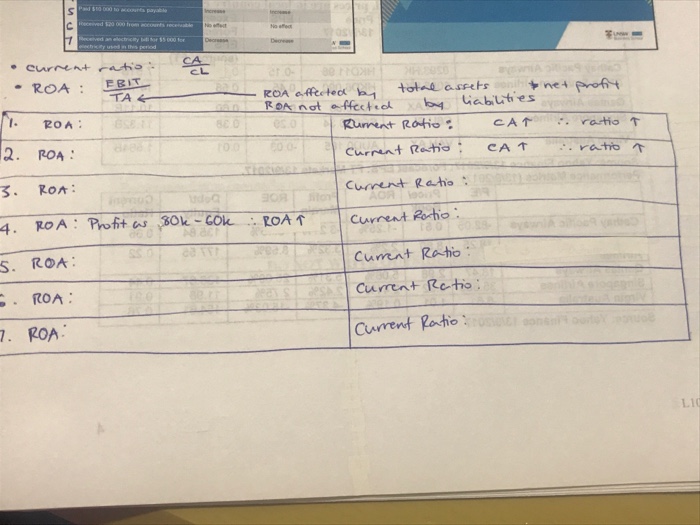 5 Paid $10 000 to accounts payable Increase Increase
6 Received $20 000 from accounts receivable No effect No effect
7 Received an electricity bill for $5 000 for electricity used in this period Decrease Decrease
• current ratio : CA / CL
• ROA : EBIT / TA ← ROA affected by total assets & net profit
ROA not affected by liabilities
1. ROA : Current Ratio : CA ↑ ∴ ratio ↑
2. ROA : Current Ratio : CA ↑ ∴ ratio ↑
3. ROA : Current Ratio :
4. ROA : Profit as 80k - 60k ∴ ROA ↑ Current Ratio :
5. ROA : Current Ratio :
6. ROA : Current Ratio :
7. ROA : Current Ratio :